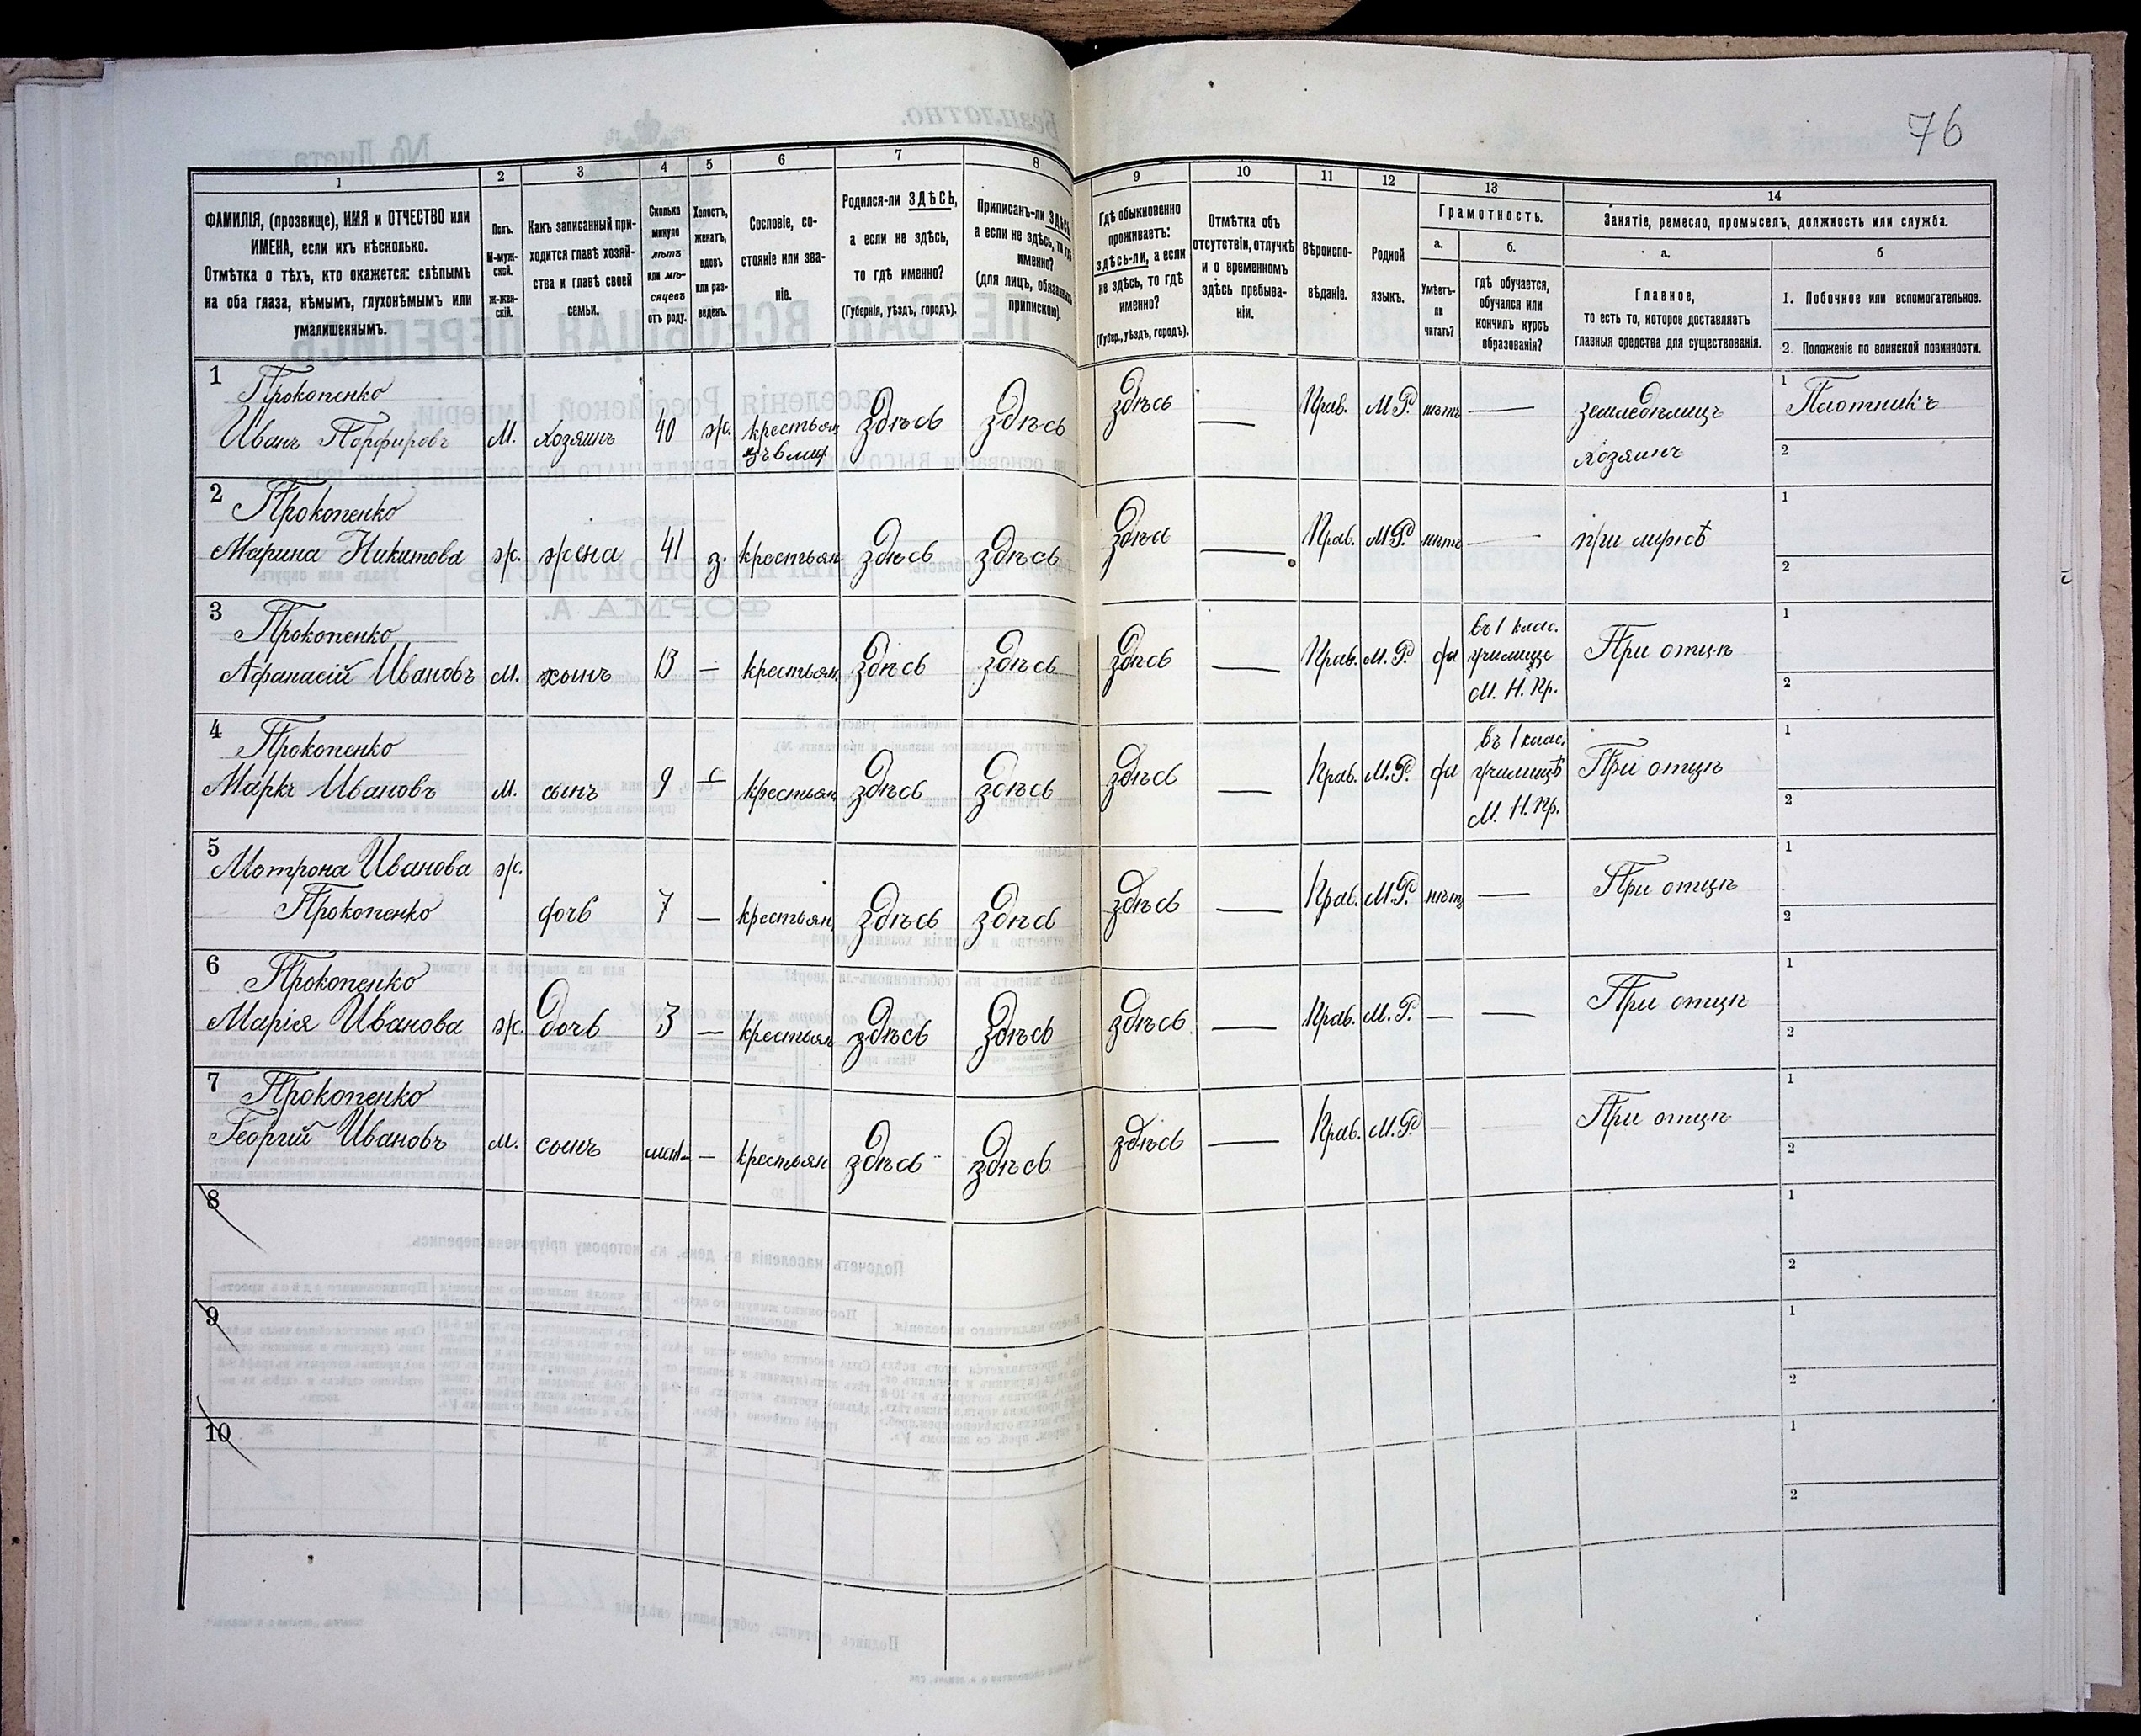 76
1
2
3
4
5
6
7
8
9
10
11
12
13
14
ФАМИЛІЯ, (прозвище), ИМЯ и ОТЧЕСТВО или
ИМЕНА, если ихъ нѣсколько.
Отмѣтка о тѣхъ, кто окажется: слѣпымъ
на оба глаза, нѣмымъ, глухонѣмымъ или
умалишеннымъ.
Полъ.
М-муж-
ской.
ж-жен-
скій.
Какъ записанный при-
ходится главѣ хозяй-
ства и главѣ своей
семьи.
Сколько
минуло
лѣтъ
или мѣ-
сяцевъ
отъ роду.
Холостъ,
женатъ,
вдовъ
или раз-
веденъ.
Сословіе, со-
стояніе или зва-
ніе.
Родился-ли ЗДѢСЬ,
а если не здѣсь,
то гдѣ именно?
(Губернія, уѣздъ, городъ).
Приписанъ-ли ЗДѢСЬ,
а если не здѣсь, то гдѣ
именно?
(для лицъ, обязанныхъ
припискою).
Гдѣ обыкновенно
проживаетъ:
здѣсь-ли, а если
не здѣсь, то гдѣ
именно?
(Губер., уѣздъ, городъ).
Отмѣтка объ
отсутствіи, отлучкѣ
и о временномъ
здѣсь пребыва-
ніи.
Вѣроиспо-
вѣданіе.
Родной
языкъ.
Грамотность.
а.
Умѣетъ-
ли
читать?
б.
гдѣ обучается,
обучался или
кончилъ курсъ
образованія?
Занятіе, ремесло, промыселъ, должность или служба.
а.
Главное,
то есть то, которое доставляетъ
главныя средства для существованія.
б
1. Побочное или вспомогательное.
2. Положеніе по воинской повинности.
1
Прокопенко
Иванъ Порфировъ
М. хозяинъ 40 ж. крестьян здѣсь здѣсь здѣсь — Прав. М.Р. нѣтъ — земледѣлецъ
хозяинъ
1 Плотникъ
2
2
Прокопенко
Марина Никитова ж. жена 41 з. крестьян здѣсь здѣсь здѣсь — Прав. М.Р. нѣтъ — при мужѣ
1
2
3
Прокопенко
Афанасій Ивановъ М. сынъ 13 — крестьян. здѣсь здѣсь здѣсь — Прав. М.Р. да
въ 1 клас.
училище
М. Н. Пр.
При отцѣ
1
2
4
Прокопенко
Маркъ Ивановъ М. сынъ 9 — крестьян здѣсь здѣсь здѣсь — Прав. М.Р. да
въ 1 клас.
училищѣ
М. Н. Пр.
При отцѣ
1
2
5
Мотрона Иванова ж.
Прокопенко дочь 7 — крестьян. здѣсь здѣсь здѣсь — Прав. М.Р. нѣтъ — При отцѣ
1
2
6
Прокопенко
Марія Иванова ж. дочь 3 — крестьян здѣсь здѣсь здѣсь — Прав. М.Р. — — При отцѣ
1
2
7
Прокопенко
Георгій Ивановъ М. сынъ — крестьян здѣсь здѣсь здѣсь — Прав. М.Р. — — При отцѣ
1
2
8
1
2
9
1
2
10
1
2